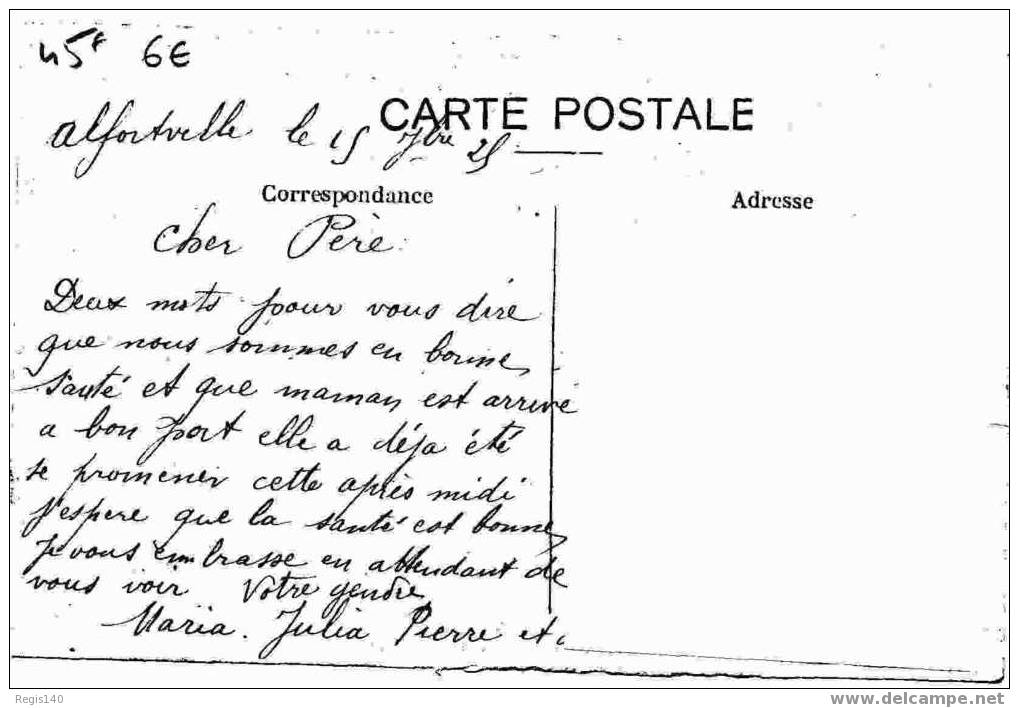 45F 6€
CARTE POSTALE
Alfortville le 15 7bre 25
Correspondance
Adresse
Cher Père
Deux mots pour vous dire
que nous sommes en bonne
santé et que maman est arrivé
a bon port elle a déja été
se promener cette après midi
J'espere que la santé est bonne
Je vous embrasse en attendant de
vous voir Votre gendre
Maria. Julia Pierre et
Regis140
www.delcampe.net